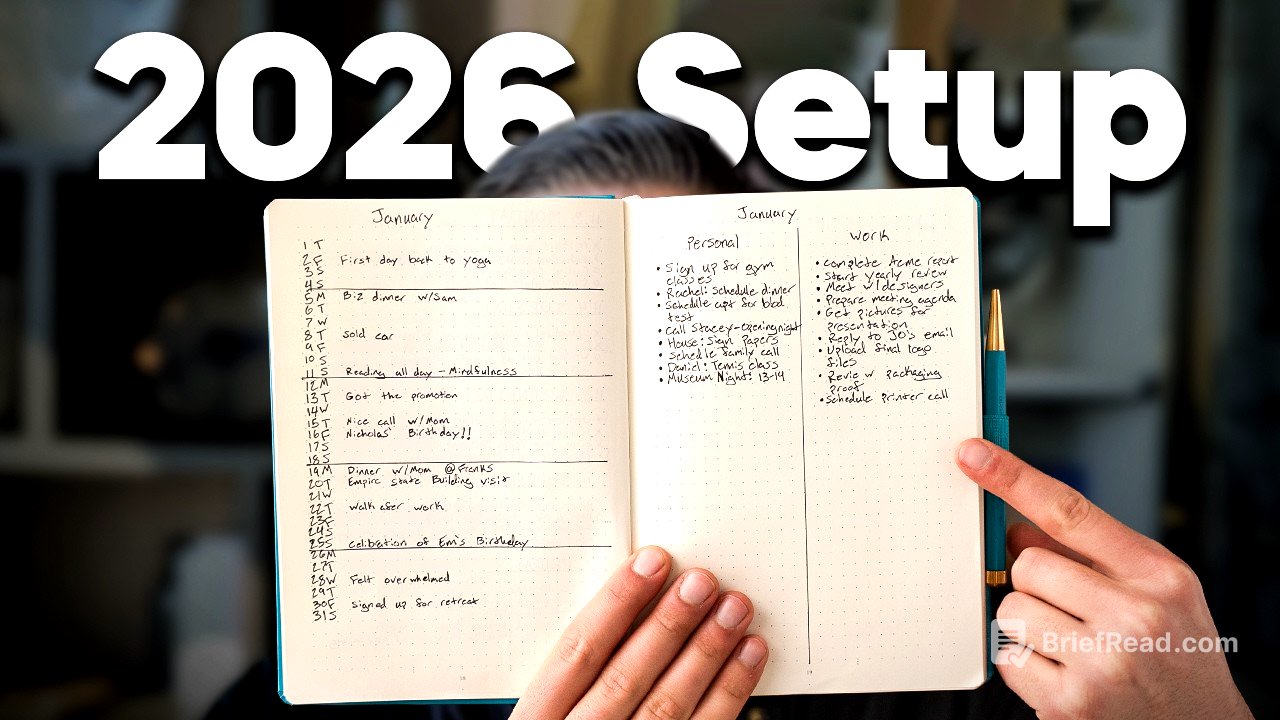 2026 Setup
January
1 T
2 F First day back to yoga
3 S
4 S
5 M Biz dinner w/Sam
6 T
7 W
8 T sold car
9 F
10 S
11 S Reading all day - Mindfulness
12 M
13 T Got the promotion
14 W
15 T Nice call w/Mom
16 F Nicholas' Birthday!!
17 S
18 S
19 M Dinner w/Mom @Franks
20 T Empire state Building visit
21 W
22 T walk after work
23 F
24 S
25 S celibration of Em's Birthday
26 M
27 T
28 W Felt overwhelmed
29 T
30 F signed up for retreat
31 S
January
Personal
• Sign up for gym
classes
• Rachel: Schedule dinner
• Schedule apt for blood
test
• Call Stacey - opening night
• House: Sign Papers
• Schedule family call
• Daniel: Tennis class
• Museum Night: 13-14
Work
• Complete Acme report
• Start yearly review
• Meet w/designers
• Prepare meeting agenda
• Get pictures for
presentation
• Reply to JD's email
• Upload final logo
files
• Review packaging
proof
• Schedule printer call
BriefRead.com